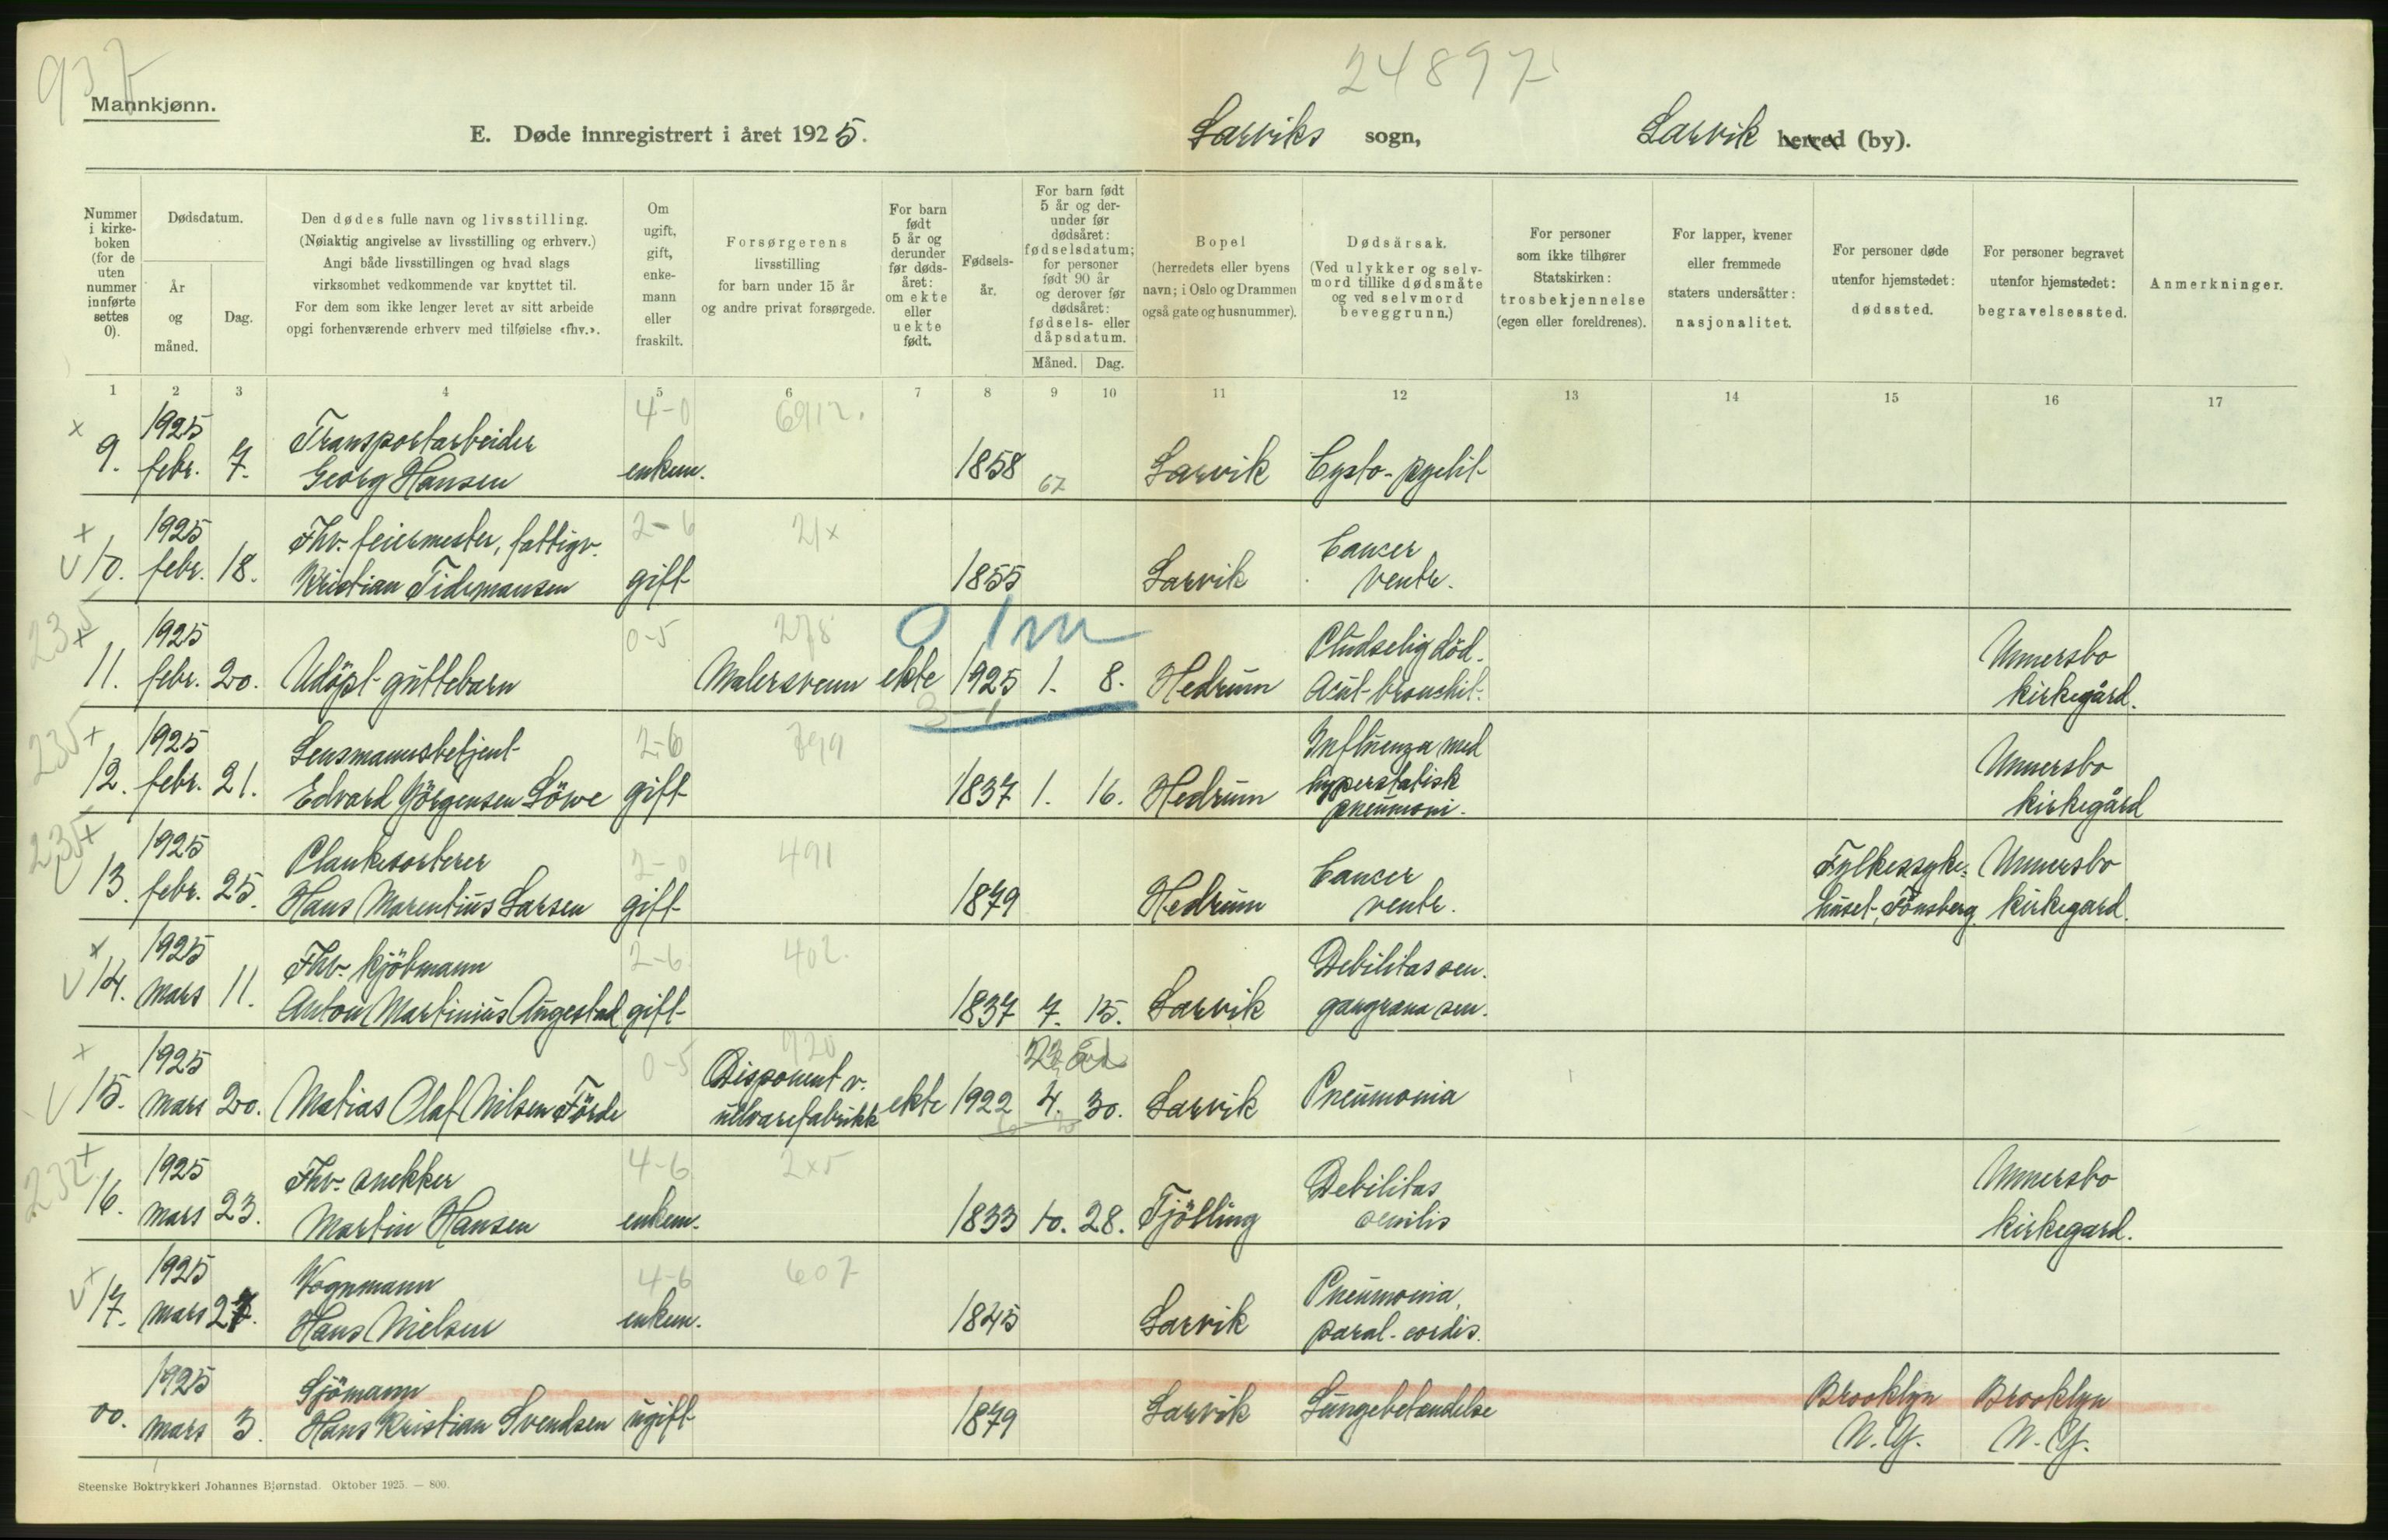 937
24897
Mannkjønn.
E. Døde innregistrert i året 1925.
Larviks sogn,
Larvik herred (by).
Nummer i kirkeboken (for de uten nummer innførte settes 0).
Dødsdatum.
År og måned.
Dag.
Den dødes fulle navn og livsstilling.
(Nøiaktig angivelse av livsstilling og erhverv.)
Angi både livsstillingen og hvad slags
virksomhet vedkommende var knyttet til.
For dem som ikke lenger levet av sitt arbeide
opgi forhenværende erhverv med tilføielse «fhv.».
Om ugift, gift, enkemann eller fraskilt.
Forsørgerens
livsstilling
for barn under 15 år
og andre privat forsørgede.
For barn født 5 år og derunder før dødsåret: om ekte eller uekte født.
Fødselsår.
For barn født 5 år og derunder før dødsåret: fødselsdatum; for personer født 90 år og derover før dødsåret: fødsels- eller dåpsdatum.
Måned. Dag.
Bopel
(herredets eller byens
navn; i Oslo og Drammen
også gate og husnummer).
Dødsårsak.
(Ved ulykker og selvmord tillike dødsmåte
og ved selvmord
beveggrunn.)
For personer
som ikke tilhører
Statskirken:
trosbekjennelse
(egen eller foreldrenes).
For lapper, kvener
eller fremmede
staters undersåtter:
nasjonalitet.
For personer døde
utenfor hjemstedet:
dødssted.
For personer begravet
utenfor hjemstedet:
begravelsessted.
Anmerkninger.
1 2 3 4 5 6 7 8 9 10 11 12 13 14 15 16 17
x 1925 Transportarbeider 4-0 6912.
9. febr. 7. Georg Hansen enkem. 1858 67 Larvik Cysto-pyelit
x 1925 Fhv. feiermester, fattigv. 2-6 21x Cancer
v 10. febr. 18. Kristian Tidemansen gift 1855 Larvik ventr.
235 x 1925 0-5 278 0 1m Pludselig död. Unnersbo
11. febr. 20. Udöpt guttebarn Malersvenn ekte 1925 1. 8. Hedrum Acut bronchit. kirkegård.
235 x 1925 Lensmannsbetjent 2-6 799 Influenza med Unnersbo
12. febr. 21. Edvard Jörgensen Löwe gift 1837 1. 16. Hedrum hyperstatisk kirkegård
pneumoni.
235 x 1925 Plankesorterer 2-0 491 Cancer Fylkessyke- Unnersbo
v 13. febr. 25. Hans Marentius Larsen gift 1879 Hedrum ventr. huset, Tönsberg kirkegard.
x 1925 Fhv. kjöbmann 2-6 402. Debilitas sen.
v 14. mars 11. Anton Martinius Augestad gift 1837 7. 15. Larvik gangræna sen.
x 1925 0-5 920 Disponent v.
v 15. mars 20. Matias Olaf Nilsen Förde ullvarefabrikk ekte 1922 4. 30. Larvik Pneumonia
232 x 1925 Fhv. snekker 4-6 2x5 Debilitas Unnersbo
16. mars 23. Martin Hansen enkem. 1833 10. 28. Tjölling senilis kirkegard.
x 1925 Vognmann 4-6 607 Pneumonia,
v 17. mars 27. Hans Nielsen enkem. 1845 Larvik paral. cordis.
1925 Sjömann Brooklyn Brooklyn
00. mars 3. Hans Kristian Svendsen ugift 1879 Larvik Lungebetændelse N.Y. N.Y.
Steenske Boktrykkeri Johannes Bjørnstad. Oktober 1925. — 800.